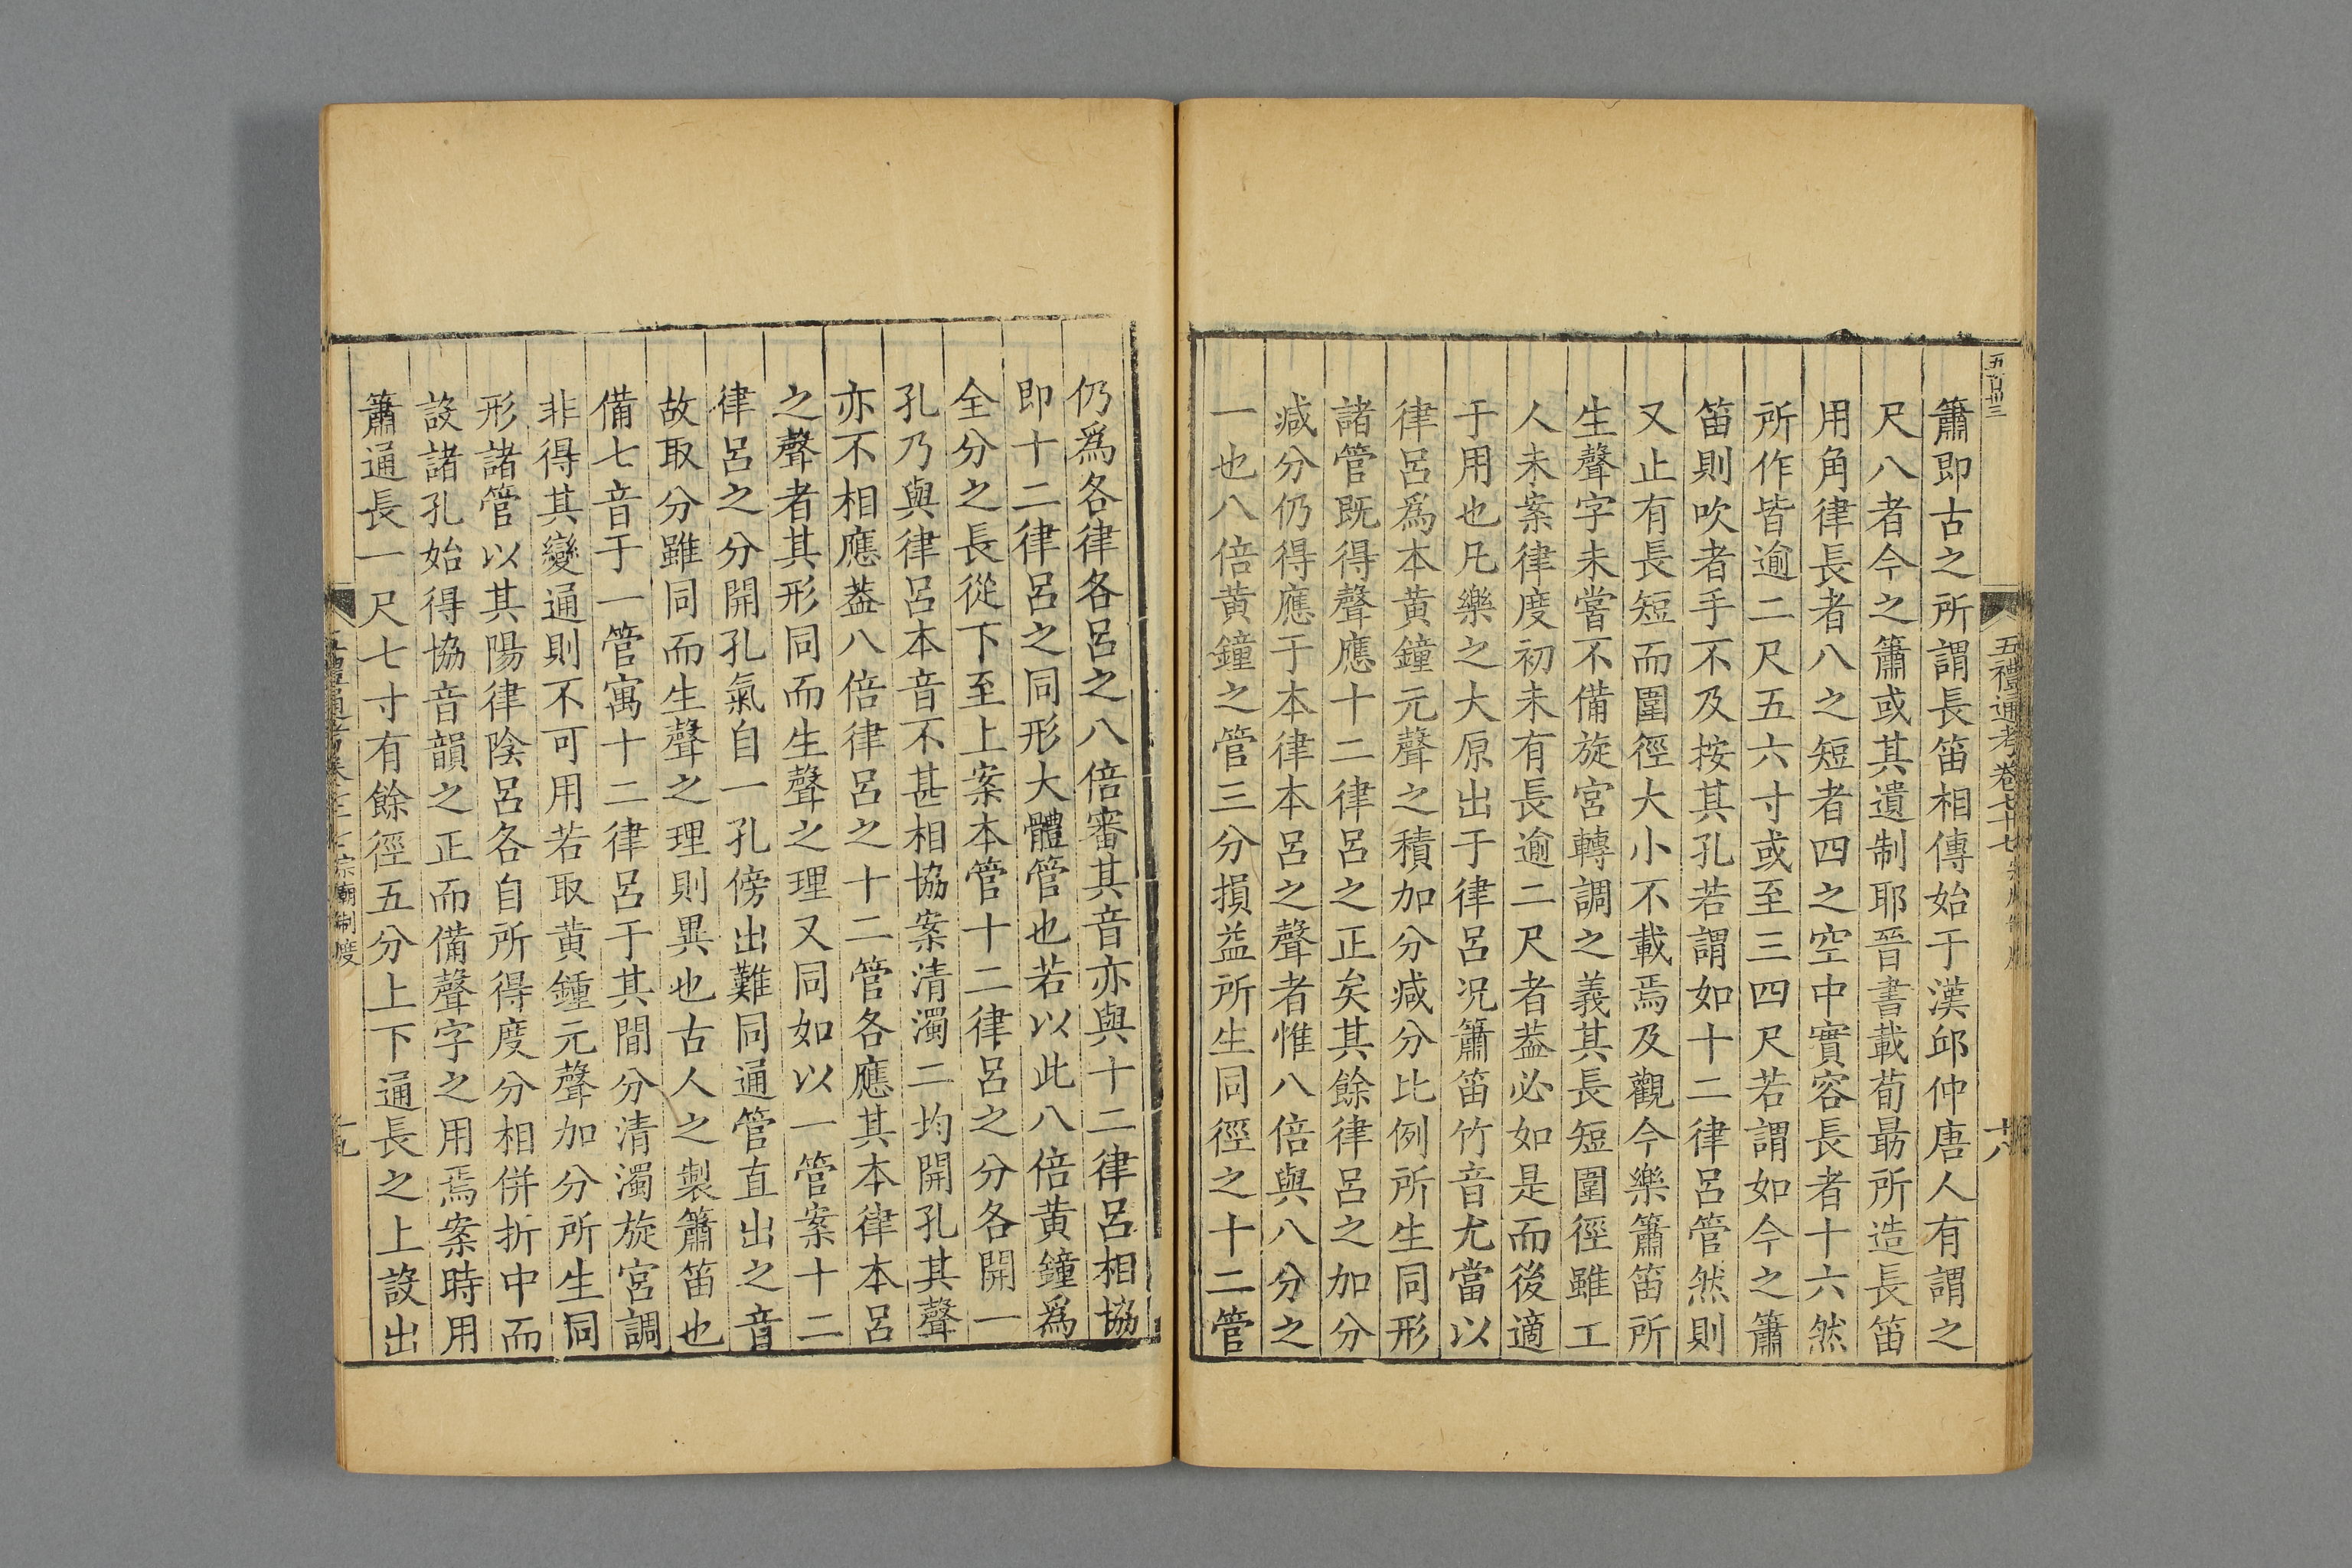 五百卅三
五禮通考卷七十七
十八
簫即古之所謂長笛相傳始于漢邱仲唐人有謂之
尺八者今之簫或其遺制耶晉書載荀勗所造長笛
用角律長者八之短者四之空中實容長者十六然
所作皆逾二尺五六寸或至三四尺若謂如今之簫
笛則吹者手不及按其孔若謂如十二律呂管然則
又止有長短而圍徑大小不載焉及觀今樂簫笛所
生聲字未嘗不備旋宮轉調之義其長短圍徑雖工
人未案律度初未有長逾二尺者葢必如是而後適
于用也凡樂之大原出于律呂况簫笛竹音尤當以
律呂爲本黃鐘元聲之積加分减分比例所生同形
諸管既得聲應十二律呂之正矣其餘律呂之加分
减分仍得應于本律本呂之聲者惟八倍與八分之
一也八倍黃鐘之管三分損益所生同徑之十二管
仍爲各律各呂之八倍審其音亦與十二律呂相協
即十二律呂之同形大體管也若以此八倍黃鐘爲
全分之長從下至上案本管十二律呂之分各開一
孔乃與律呂本音不甚相協案清濁二均開孔其聲
亦不相應葢八倍律呂之十二管各應其本律本呂
之聲者其形同而生聲之理又同如以一管案十二
律呂之分開孔氣自一孔傍出難同通管直出之音
故取分雖同而生聲之理則異也古人之製簫笛也
備七音于一管寓十二律呂于其間分清濁旋宮調
非得其變通則不可用若取黃鍾元聲加分所生同
形諸管以其陽律陰呂各自所得度分相併折中而
設諸孔始得協音韻之正而備聲字之用焉案時用
簫通長一尺七寸有餘徑五分上下通長之上設出
宗廟制度